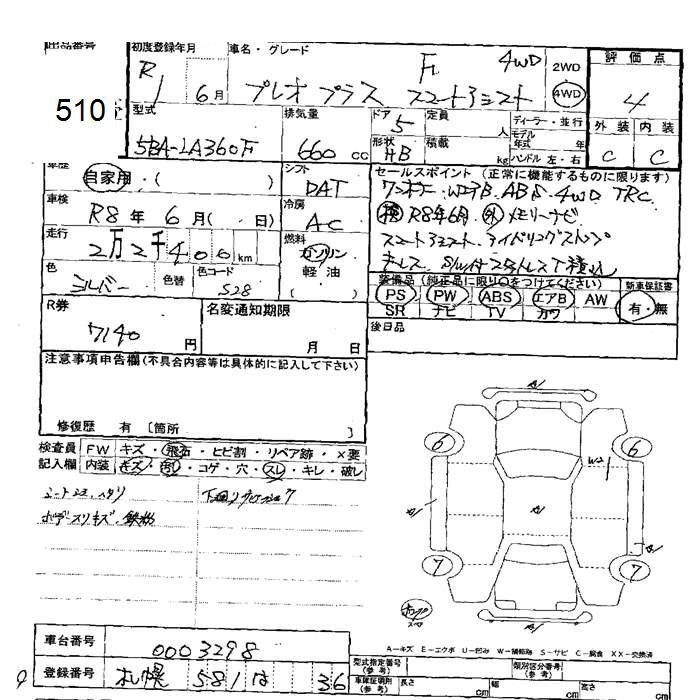 出品番号
510
初度登録年月
R1 6月
車名・グレード
F 4WD
プレオ プラス スマートアシスト
2WD
4WD
評価点
4
外装 内装
C C
型式
5BA-LA360F
排気量
660 cc
ドア
5
定員
人
形状
HB
積載
kg
ディーラー・並行
モデル年式 年
ハンドル 左・右
車歴
自家用・( )
シフト
DAT
車検
R8年 6月( ・ 日)
冷房
AC
走行
2万2千400km
燃料
ガソリン
軽油
( )
色
シルバー
色替
色コード
S28
セールスポイント(正常に機能するものに限ります)
ワンオーナー WエアB ABS 4WD TRC
検 R8年6月 外 メモリーナビ
スマートアシスト アイドリングストップ
キーレス
装備品(純正品に限り○をつけてください)
PS PW ABS エアB AW
SR ナビ TV カワ
新車保証書
有・無
後日品
R券
7140 円
名変通知期限
月 日
注意事項申告欄(不具合内容等は具体的に記入して下さい)
修復歴 有〔箇所 〕
検査員記入欄
FW キズ・飛石・ヒビ割・リペア跡・×要
内装 キズ・汚・コゲ・穴・スレ・キレ・破レ
ボデースリキズ・鉄粉
6 6
W2
7 7
A1
A-キズ E-エクボ U-凹み W-補修跡 S-サビ C-腐食 XX-交換済
車台番号
0003298
登録番号
札幌 581 は 36
型式指定番号(参考)
類別区分番号(参考)
車庫証明用(参考)
長さ
幅
高さ